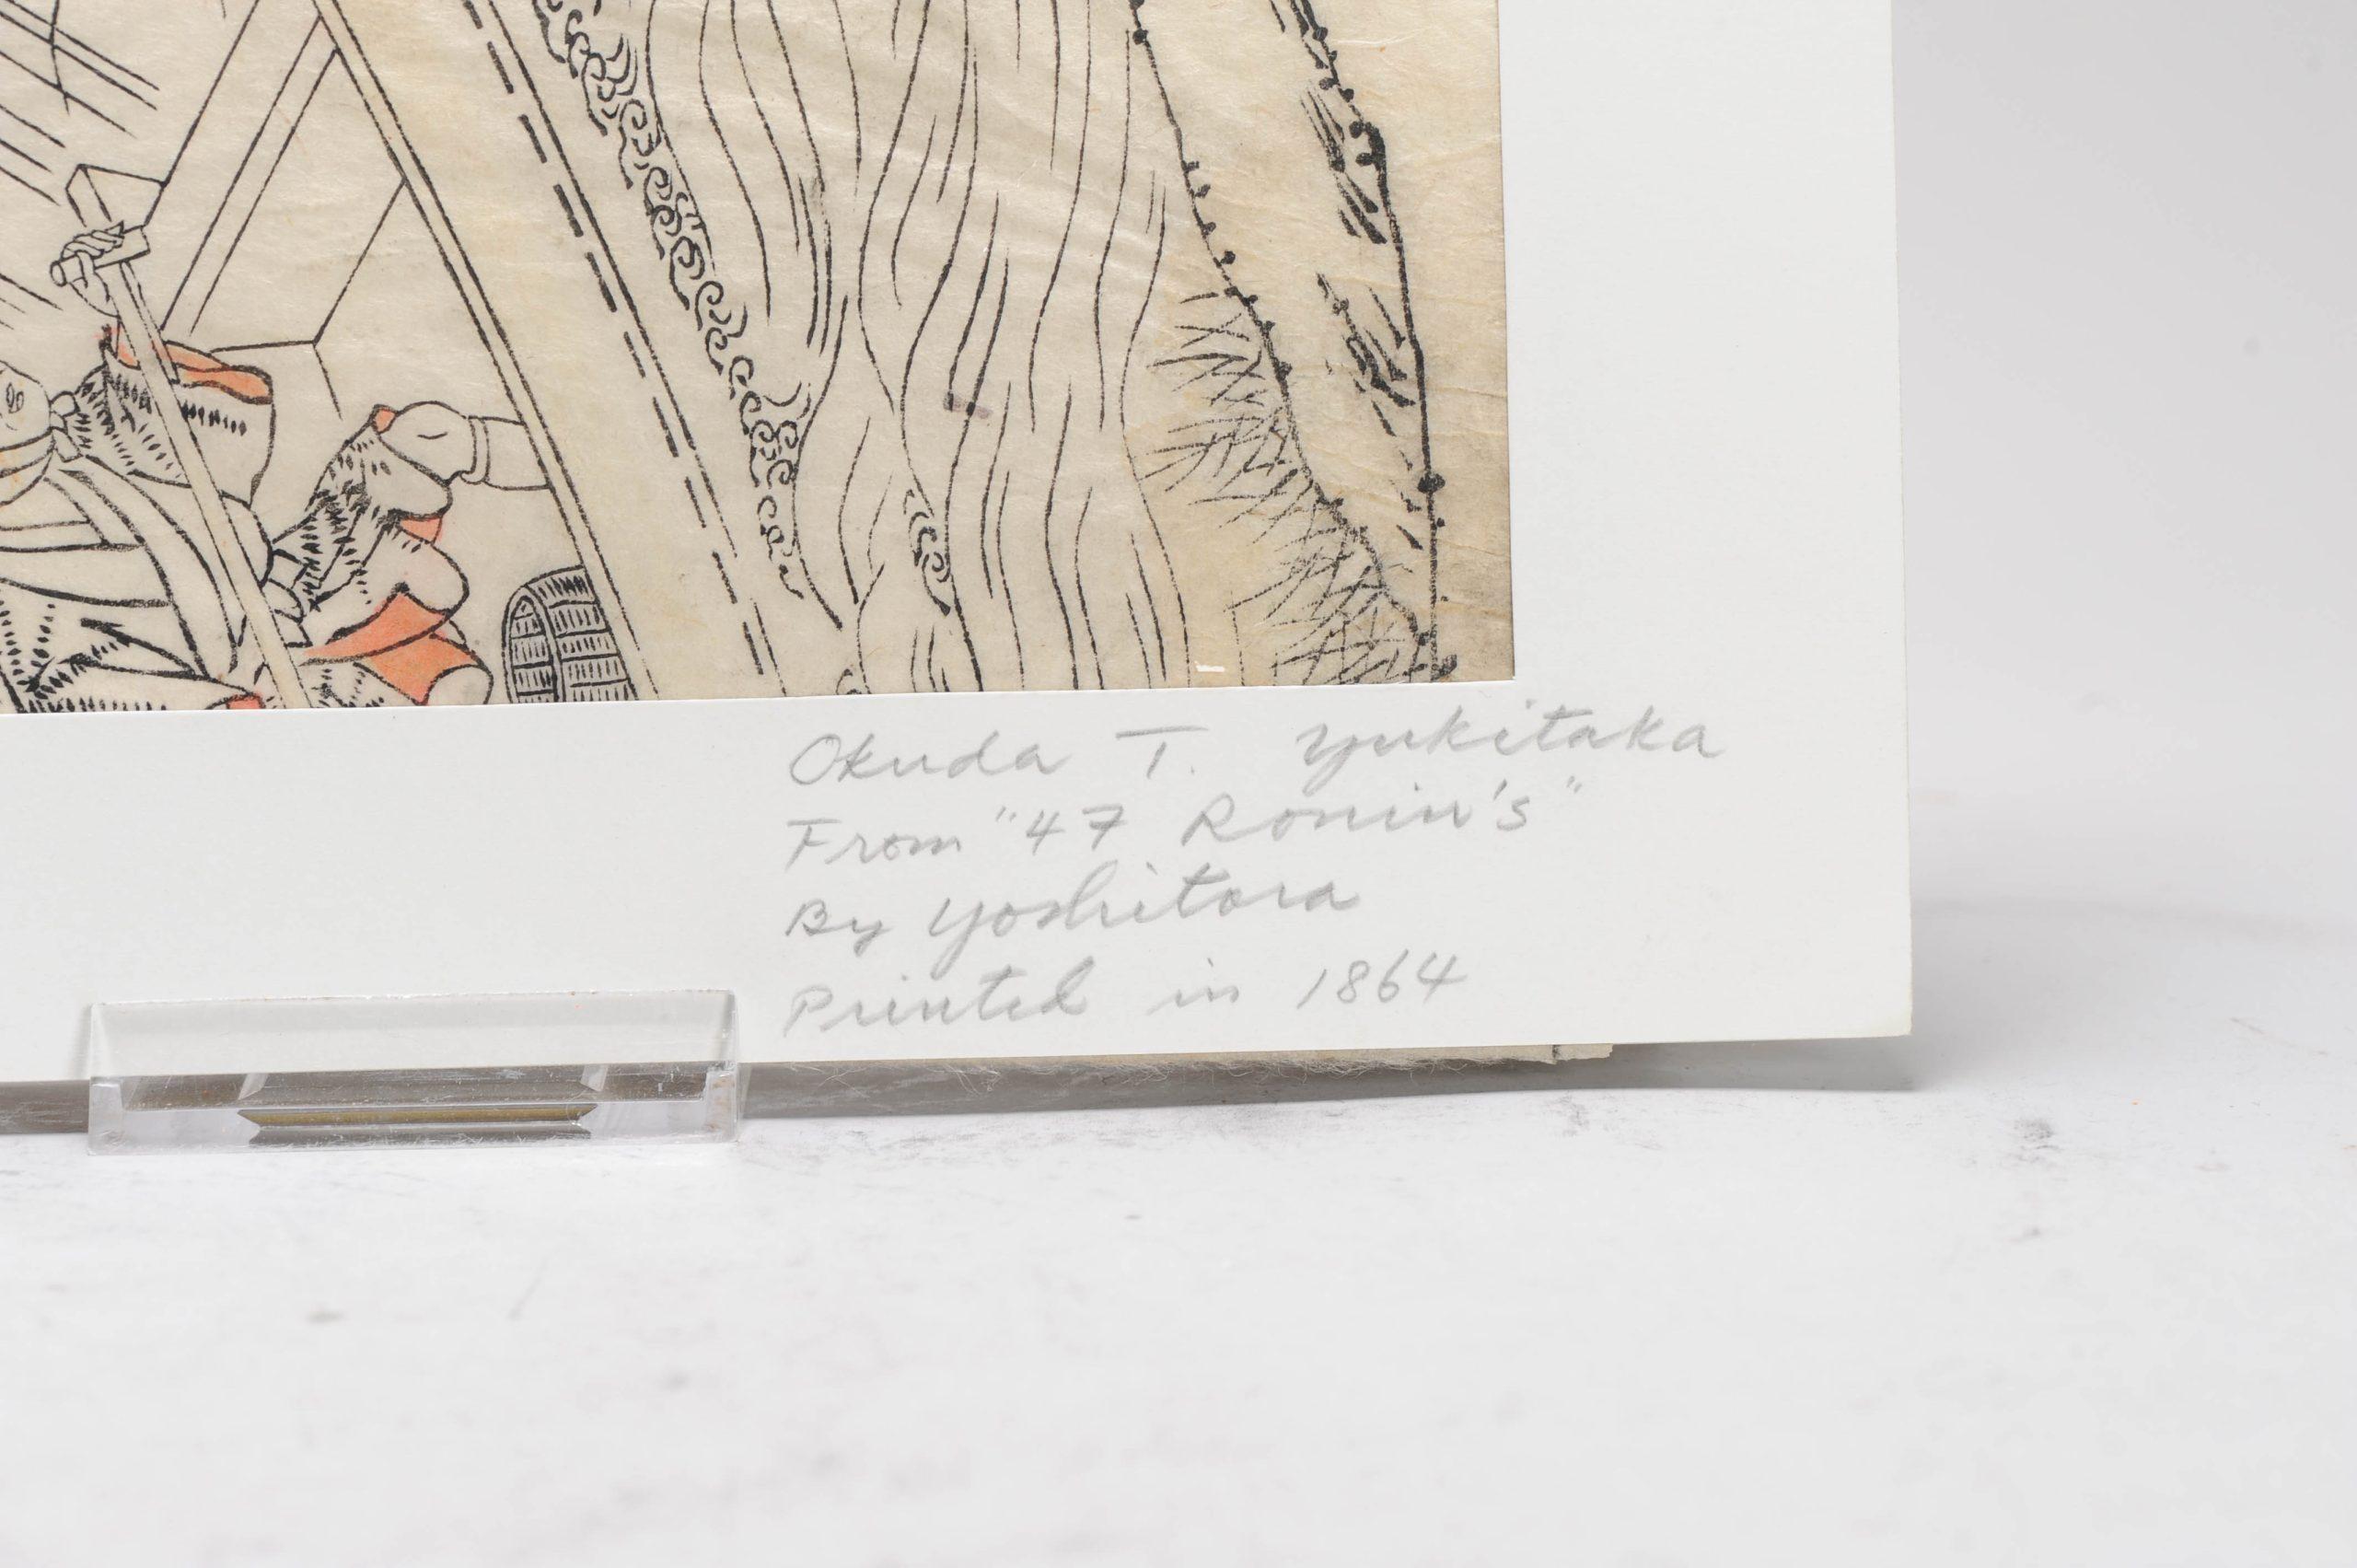 Okuda T. Yukitaka
From "47 Ronin's"
By Yoshitora
Printed in 1864